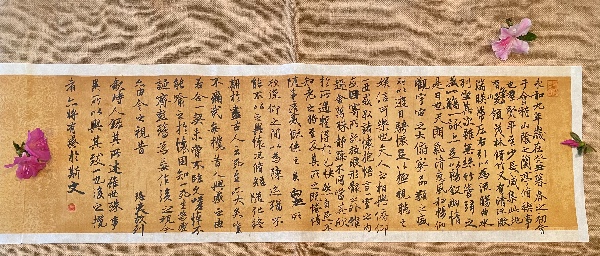 永和九年歲在癸丑暮春之初會
于會稽山陰之蘭亭修禊事
也羣賢畢至少長咸集此地
有崇山峻領茂林脩竹又有清流激
湍暎帶左右引以為流觴曲水
列坐其次雖無絲竹管弦之
盛一觴一詠亦足以暢敘幽情
是日也天朗氣清惠風和暢仰
觀宇宙之大俯察品類之盛
所以遊目騁懷足以極視聽之
娛信可樂也夫人之相與俯仰
一世或取諸懷抱悟言一室之內
或因寄所託放浪形骸之外雖
趣舍萬殊靜躁不同當其欣
於所遇暫得於己快然自足不
知老之將至及其所之既惓情
隨事遷感慨係之矣向之所
欣俛仰之間以為陳迹猶不
能不以之興懷況脩短隨化終
期於盡古人云死生亦大矣豈
不痛哉每攬昔人興感之由
若合一契未嘗不臨文嗟悼不
能喻之於懷固知一死生為虛
誕齊彭殤為妄作後之視今
亦由今之視昔 悲夫故列
敘時人錄其所述雖世殊事
異所以興懷其致一也後之攬
者亦將有感於斯文